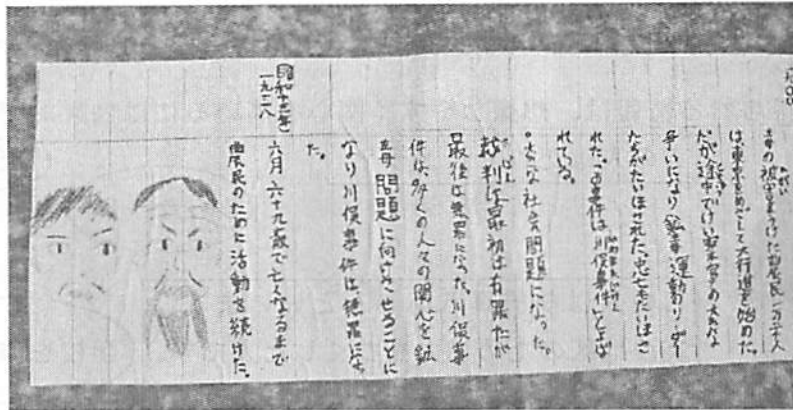 は、東京をめざして大行進を始めた。
だが途中でけい察官との大きな
争いになり鉱毒運動のリーダー
たちがたいほされた。忠七もたいほさ
れた。この事件は川俣事件とよば
れている。
。大きな社会問題になった。
裁判は最初は有罪だが
最後は無罪になった。川俣事
件は、多くの人々の関心を鉱
毒問題に向けさせることに
なり川俣事件は
た。
昭和十三年
一九三八
六月 六十九歳で亡くなるまで
農民のために活動を続けた。